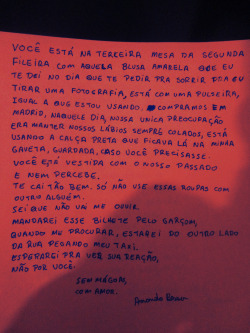 VOCÊ ESTÁ NA TERCEIRA MESA DA SEGUNDA
FILEIRA COM AQUELA BLUSA AMARELA QUE EU
TE DEI NO DIA QUE TE PEDIR PRA SORRIR PRA EU
TIRAR UMA FOTOGRAFIA, ESTÁ COM UMA PULSEIRA,
IGUAL A QUE ESTOU USANDO. COMPRAMOS EM
MADRID, NAQUELE DIA, NOSSA UNICA PREOCUPAÇÃO
ERA MANTER NOSSOS LÁBIOS SEMPRE COLADOS, ESTÁ
USANDO A CALÇA PRETA QUE FICAVA LÁ NA MINHA
GAVETA, GUARDADA, CASO VOCÊ PRECISASSE.
VOCÊ ESTÁ VESTIDA COM O NOSSO PASSADO
E NEM PERCEBE.
TE CAI TÃO BEM. SÓ NÃO USE ESSAS ROUPAS COM
OUTRO ALGUÉM.
SEI QUE NÃO VAI ME OUVIR.
MANDAREI ESSE BILHETE PELO GARÇOM,
QUANDO ME PROCURAR, ESTAREI DO OUTRO LADO
DA RUA PEGANDO MEU TAXI.
ESPERAREI PRA VER SUA REAÇÃO,
NÃO POR VOCÊ.
SEM MÁGOA,
COM AMOR.